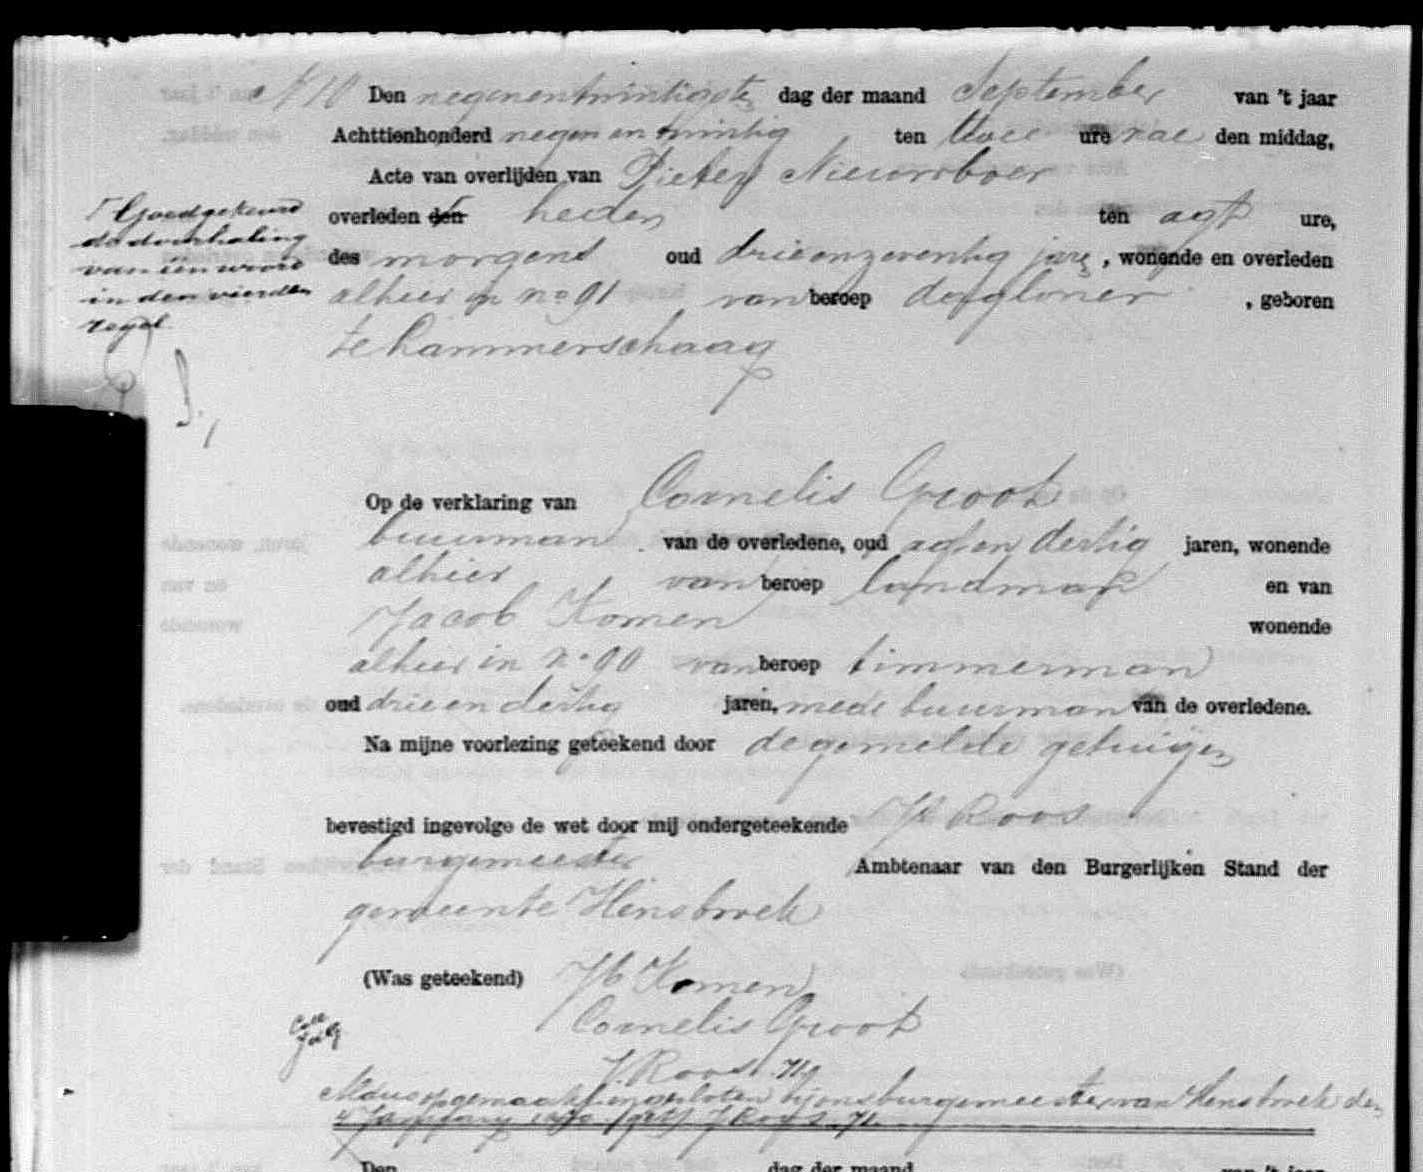 N 10 Den negenentwintigste dag der maand September van 't jaar
Achttienhonderd negen en twintig ten twee ure nae den middag,
Acte van overlijden van Pieter Nieuwboer
overleden den heden ten agt ure,
des morgens oud drieenzeventig jare, wonende en overleden
alhier in no 91 van beroep dagloner, geboren
te Lammerschaag
Goedgekeurd
de doorhaling
van een woord
in den vierden
regel
Op de verklaring van Cornelis Groot
buurman van de overledene, oud agt en dertig jaren, wonende
alhier van beroep landman en van
Jacob Komen wonende
alhier in no 90 van beroep timmerman
oud drie en dertig jaren, mede buurman van de overledene.
Na mijne voorlezing geteekend door de gemelde getuigen
bevestigd ingevolge de wet door mij ondergeteekende Js Roos
burgemeester Ambtenaar van den Burgerlijken Stand der
gemeente Hensbroek
(Was geteekend) Jb Komen
Cornelis Groot
J Roos
Aldus opgemaakt en gesloten bij ons burgemeester van Hensbroek den
Den dag der maand van 't jaar